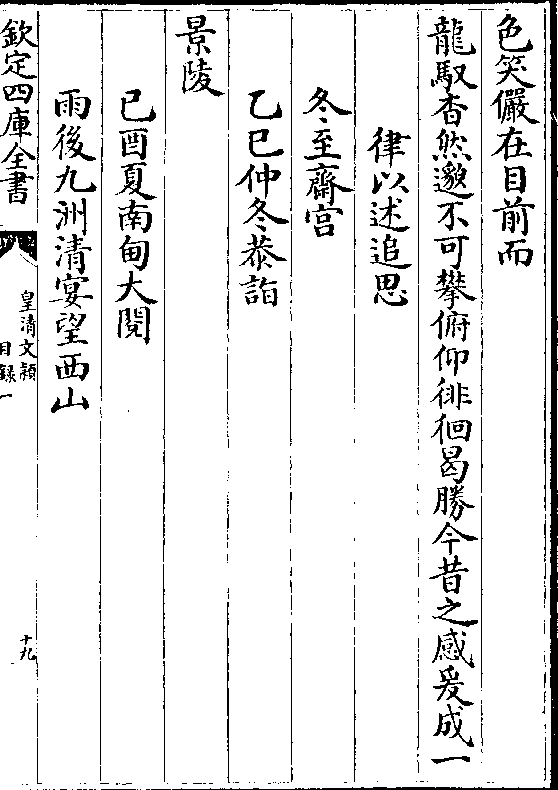 色笑儼在目前而
龍馭杳然邈不可攀俯仰徘徊曷勝今昔之感爰成一
律以述追思
冬至齋宮
乙巳仲冬恭詣
景陵
己酉夏南甸大閱
雨後九洲清宴望西山
欽定四庫全書
皇清文穎
目錄一
十九